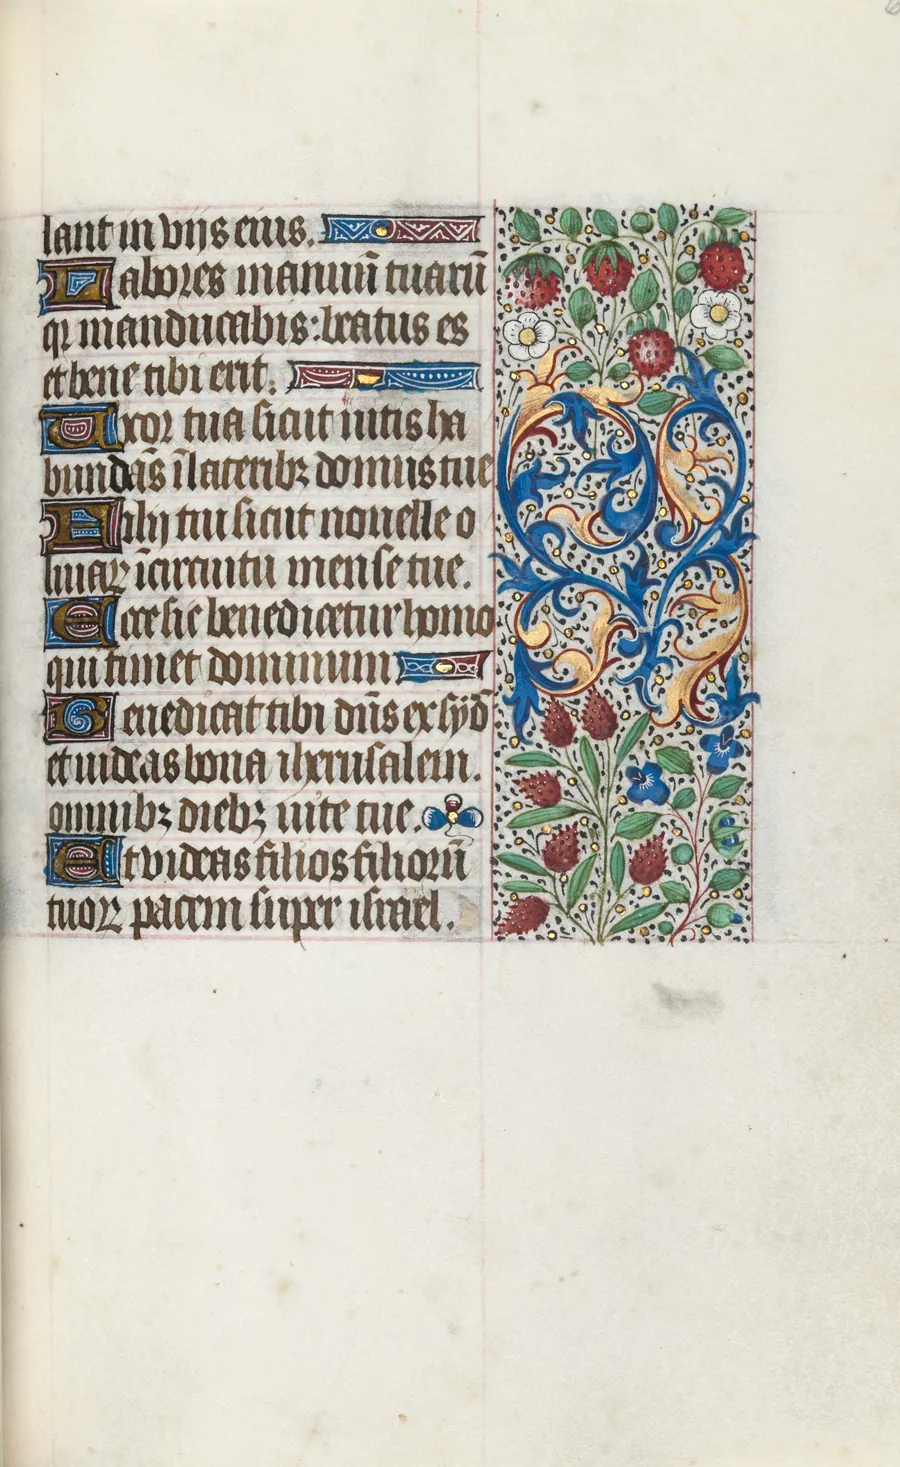 lant in vijs eius.
Labores manuū tuarū
qꝛ manducabis: beatus es
et bene tibi erit.
Uxor tua sicut uitis ha
bundās ī lateribꝫ domus tue
Filij tui sicut nouelle o
liuaꝝ ī circuitu mense tue.
Ecce sic benedicetur homo
qui timet dominum
Benedicat tibi dn̄s ex syō
et uideas bona iherusalem.
omnibꝫ diebꝫ uite tue.
Et videas filios filiorū
tuoꝝ pacem super israel.